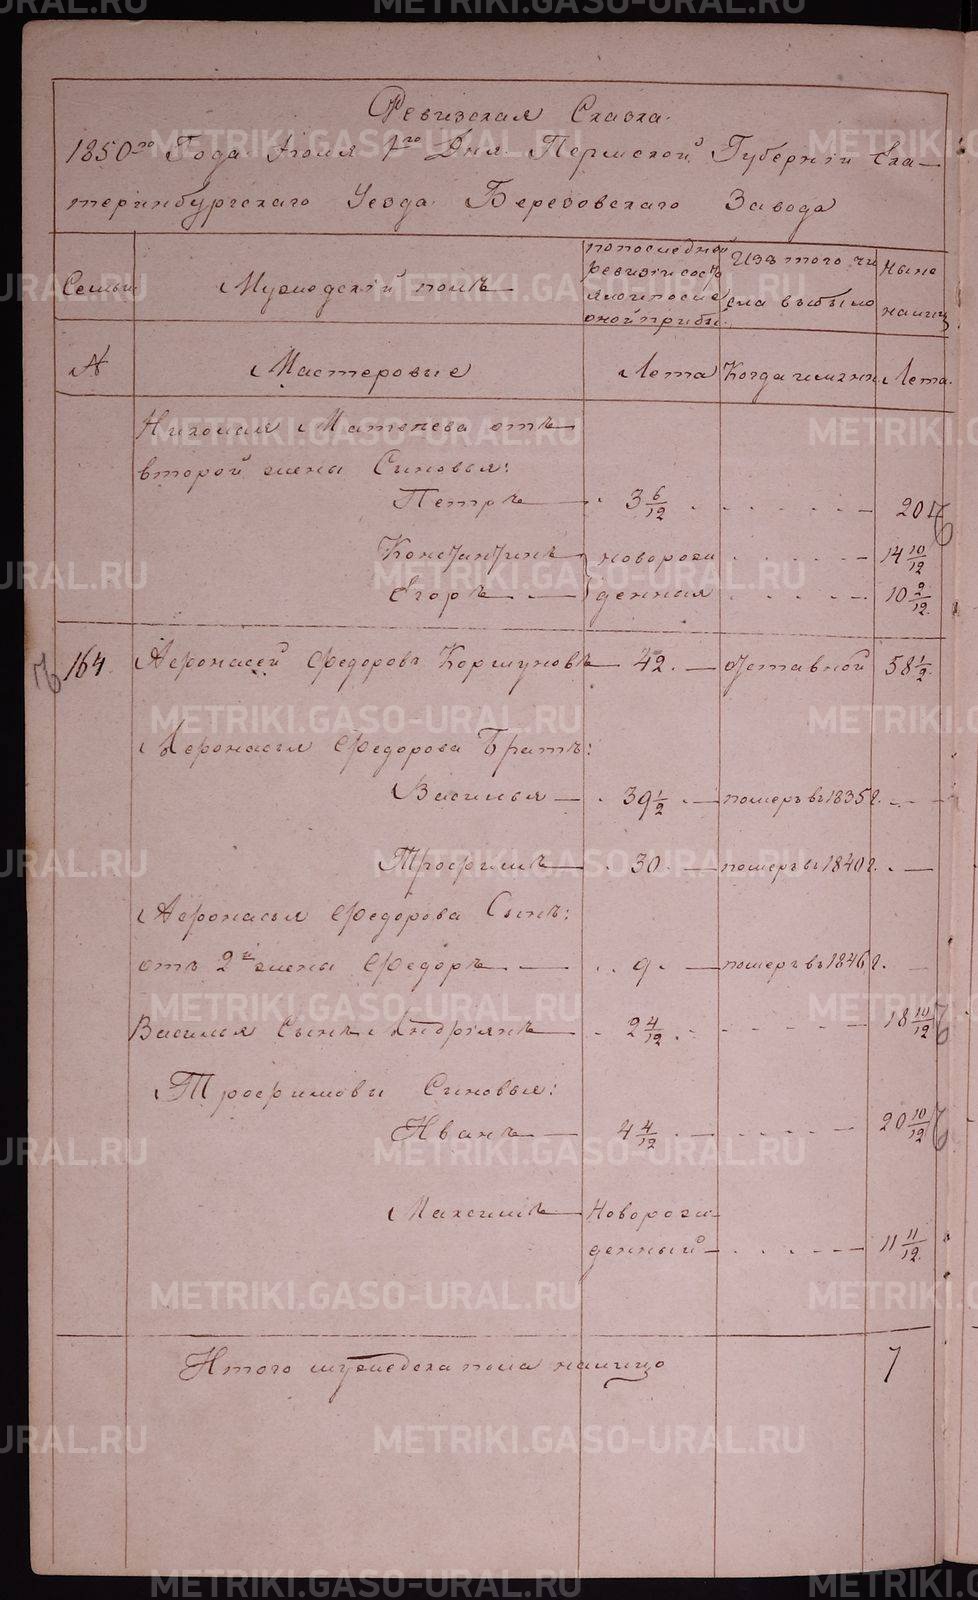 Ревизская Сказка.
1850го Года Июля 1го Дня Пермской Губернии Ека-
теринбургскаго Уезда Березовскаго Завода
Семьи
Мужескiй полъ
попоследной
ревизiи сост
ояло и после
оной прибы.
Изъ того чи
сла выбыло
Ныне
налиц
№
Мастеровые
Лета
Когда именно
Лета.
Николая Матвеева отъ
второй жены Сыновья:
Петръ 3 6/12 20 1/2
Константинъ новорож 14 10/12
Егоръ денная 10 2/12
164. Афонасей Федоровъ Коршуновъ 42. отставной 58 1/2
Афонасья Федорова Братъ:
Василья 39 1/2 померъ въ 1835 г.
Трофимъ 30 померъ въ 1840 г.
Афонасья Федорова Сынъ:
отъ 2й жены Федоръ 9 померъ въ 1846 г.
Василья Сынъ Андрiянъ 2 4/12 18 10/12
Трофимовы Сыновья:
Иванъ 4 4/12 20 10/12
Максимъ Новорож-
денный 11 11/12
Итого мужеска пола налицо 7
METRIKI.GASO-URAL.RU